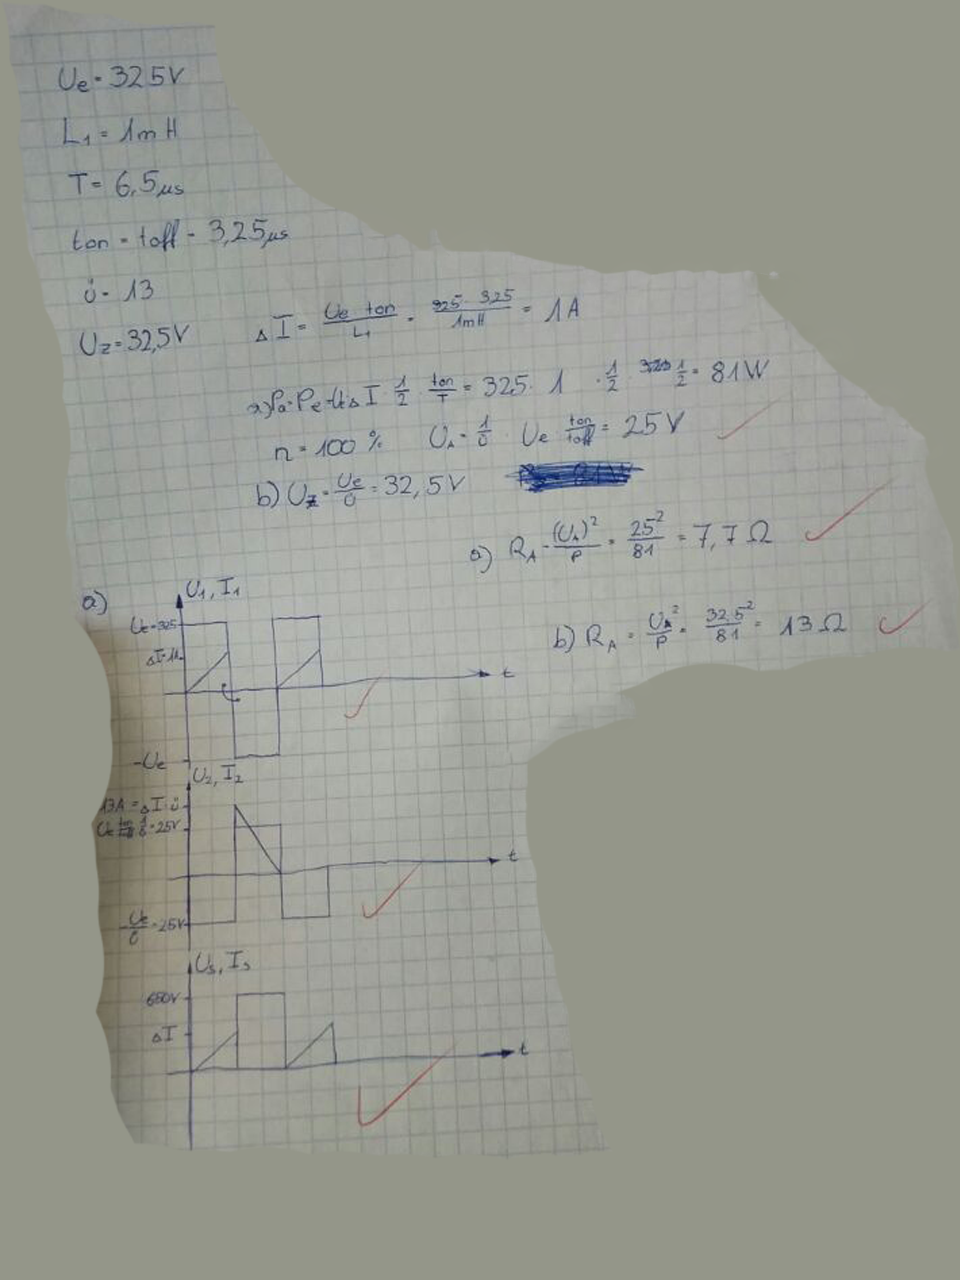 Ue = 325V
L₁ = 1mH
T = 6,5µs
ton = toff = 3,25µs
ü = 13
Uz = 32,5V
ΔI = Ue · ton / L₁ = 325 · 3,25 / 1mH = 1A
a) Pa = Pe = Ue ΔI · 1/2 · ton/T = 325 · 1 · 1/2 · 1/2 = 81W
η = 100% U_A = 1/ü · Ue ton/toff = 25V
b) Uz = Ue/ü = 32,5V
a) R_A = (U_A)²/P = 25²/81 = 7,7Ω
b) R_A = U_A²/P = 32,5²/81 = 13Ω
a)
U₁, I₁
Ue=325
ΔI=1A
t
-Ue
U₂, I₂
13A = ΔI·ü
Ue ton/toff 1/ü = 25V
t
-Ue/ü = 25V
Us, Is
650V
ΔI
t